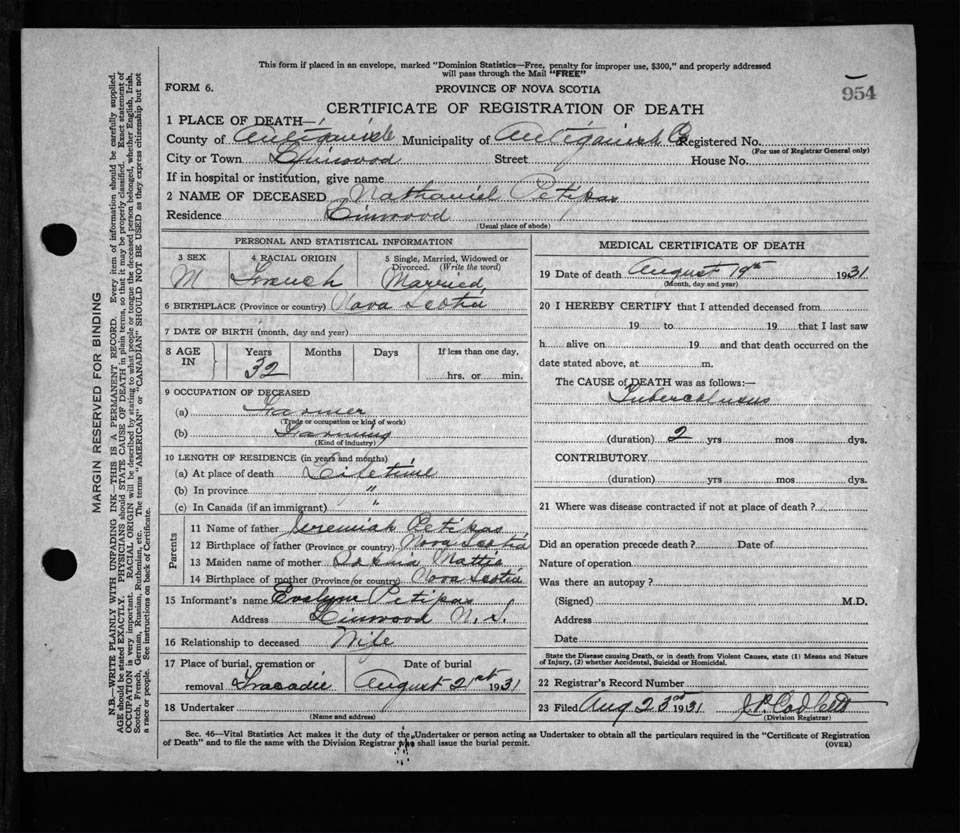 This form if placed in an envelope, marked "Dominion Statistics—Free, penalty for improper use, $300," and properly addressed
will pass through the Mail "FREE"
FORM 6.
PROVINCE OF NOVA SCOTIA
954
CERTIFICATE OF REGISTRATION OF DEATH
1 PLACE OF DEATH—
County of Antigonish Municipality of Antigonish Co Registered No.
(For use of Registrar General only)
City or Town Linwood Street House No.
If in hospital or institution, give name
2 NAME OF DECEASED Nathaniel Petipas
Residence Linwood
(Usual place of abode)
PERSONAL AND STATISTICAL INFORMATION
3 SEX 4 RACIAL ORIGIN 5 Single, Married, Widowed or
Divorced. (Write the word)
M French Married
6 BIRTHPLACE (Province or country) Nova Scotia
7 DATE OF BIRTH (month, day and year)
8 AGE IN Years Months Days If less than one day,
32 hrs. or min.
9 OCCUPATION OF DECEASED
(a) Farmer
(Trade or occupation or kind of work)
(b) Farming
(Kind of industry)
10 LENGTH OF RESIDENCE (in years and months)
(a) At place of death Life time
(b) In province "
(c) In Canada (if an immigrant) "
Parents
11 Name of father Jeremiah Petipas
12 Birthplace of father (Province or country) Nova Scotia
13 Maiden name of mother Mattie
14 Birthplace of mother (Province or country) Nova Scotia
15 Informant's name Evelyne Petipas
Address Linwood N.S.
16 Relationship to deceased Wife
17 Place of burial, cremation or
removal Tracadie
Date of burial
August 21st 1931
18 Undertaker
(Name and address)
MEDICAL CERTIFICATE OF DEATH
19 Date of death August 19th 1931
(Month, day and year)
20 I HEREBY CERTIFY that I attended deceased from
19 to 19 that I last saw
h alive on 19 and that death occurred on the
date stated above, at m.
The CAUSE of DEATH was as follows:—
Tuberculosis
(duration) 2 yrs mos dys.
CONTRIBUTORY
(duration) yrs mos dys.
21 Where was disease contracted if not at place of death?
Did an operation precede death? Date of
Nature of operation
Was there an autopsy?
(Signed) M.D.
Address
Date
State the Disease causing Death, or in death from Violent Causes, state (1) Means and Nature
of Injury, (2) whether Accidental, Suicidal or Homicidal.
22 Registrar's Record Number
23 Filed Aug 23rd 1931 J.P. Corbett
(Division Registrar)
Sec. 46—Vital Statistics Act makes it the duty of the Undertaker or person acting as Undertaker to obtain all the particulars required in the "Certificate of Registration
of Death" and to file the same with the Division Registrar who shall issue the burial permit.
(OVER)
MARGIN RESERVED FOR BINDING
N.B.—WRITE PLAINLY WITH UNFADING INK—THIS IS A PERMANENT RECORD. Every item of information should be carefully supplied.
AGE should be stated EXACTLY. PHYSICIANS should STATE CAUSE OF DEATH in plain terms, so that it may be properly classified. Exact statement of
OCCUPATION is very important. RACIAL ORIGIN will be described by stating to what people or tongue the deceased person belonged, whether English, Irish,
Scotch, French, German, Russian, Ruthenian, etc. The terms "AMERICAN" or "CANADIAN" SHOULD NOT BE USED as they express citizenship but not
a race or people. See instructions on back of Certificate.